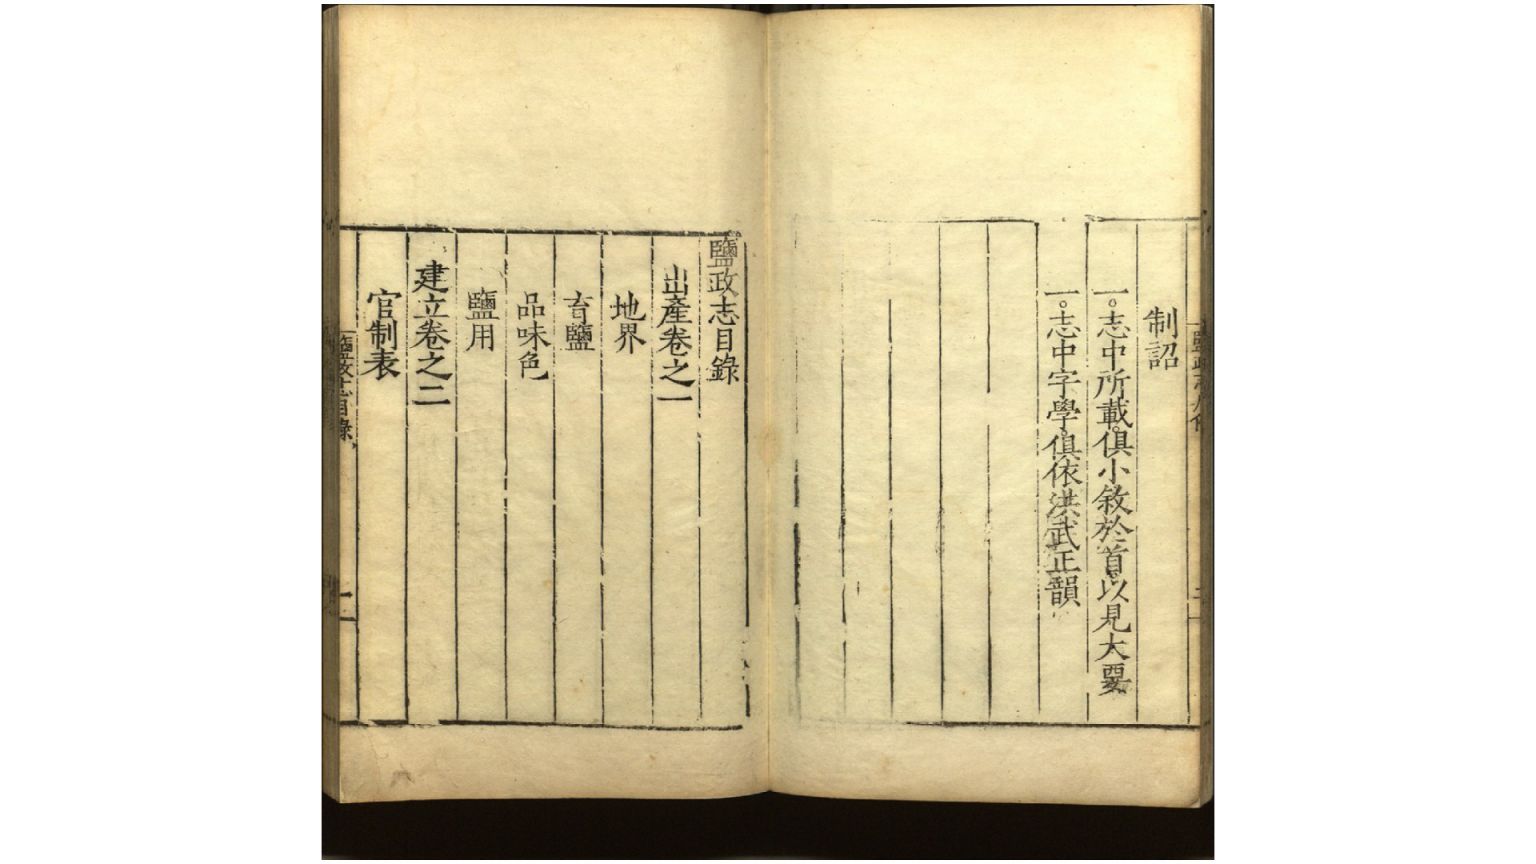 制詔
一。志中所載。俱小敘於首以見大要
一。志中字學。俱依洪武正韻
鹽政志目錄
出產卷之一
地界
育鹽
品味色
鹽用
建立卷之二
官制表
鹽政志目錄